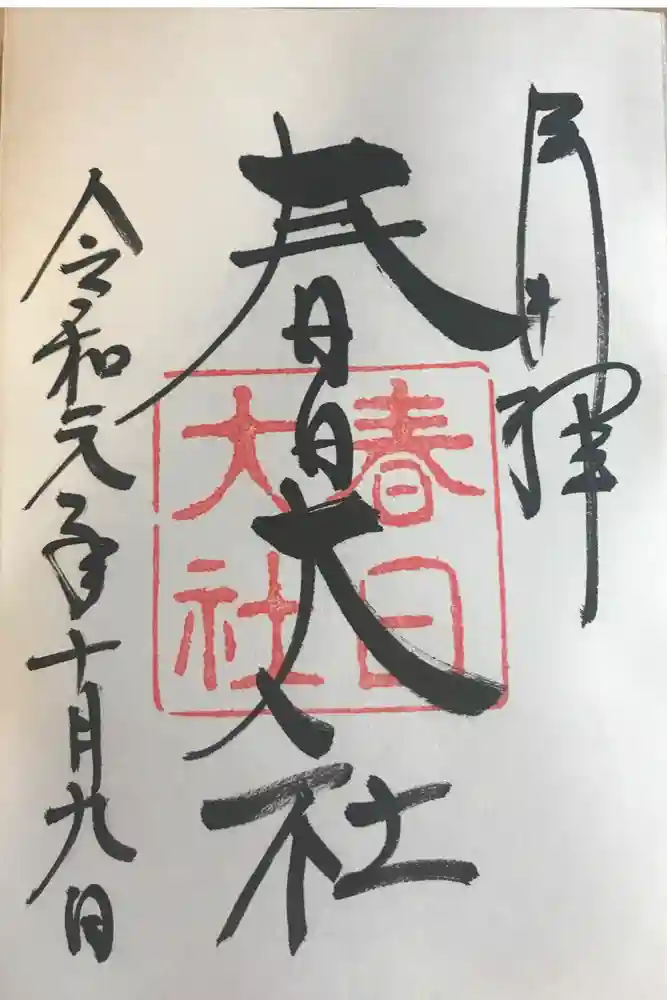 春日大社
令和元年十月九日
春日
大社